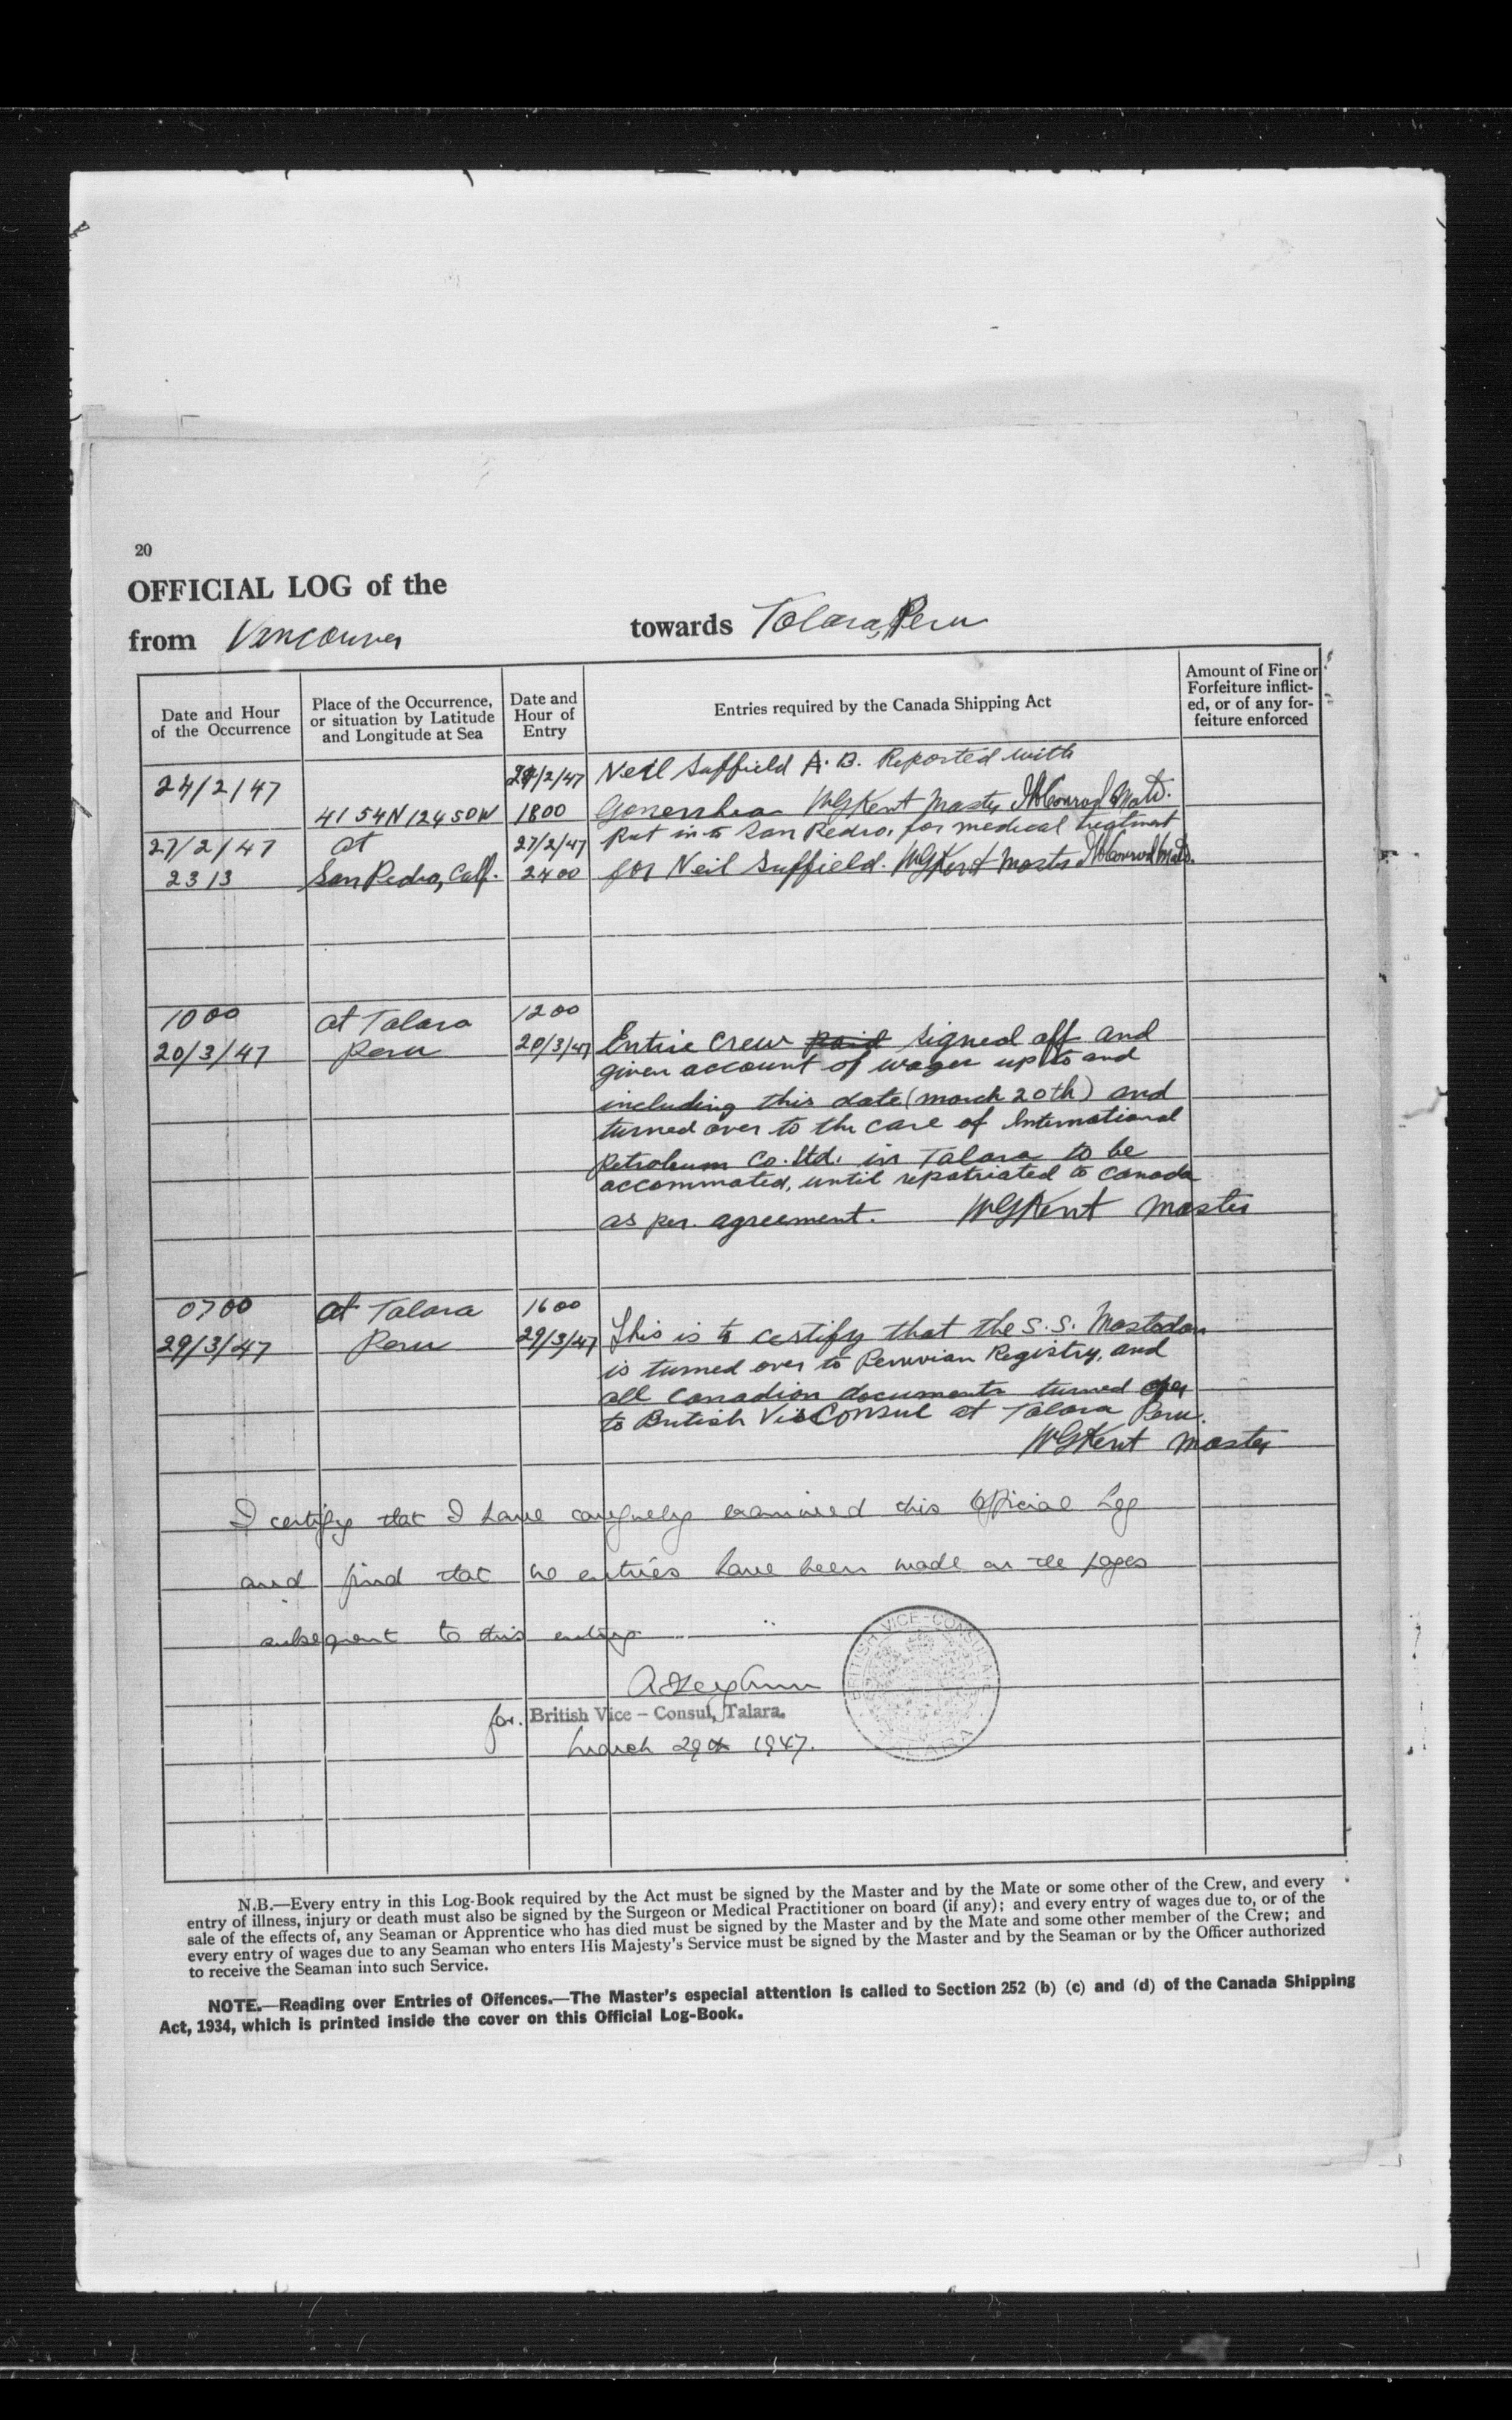 20
OFFICIAL LOG of the
from Vancouver towards Talara, Peru
Date and Hour of the Occurrence
Place of the Occurrence, or situation by Latitude and Longitude at Sea
Date and Hour of Entry
Entries required by the Canada Shipping Act
Amount of Fine or Forfeiture inflicted, or of any forfeiture enforced
24/2/47 24/2/47 Neil Suffield A.B. Reported with
41 54N 124 50W 1800 Gonerrhea WGKent Master Conrad Mate.
27/2/47 at 27/2/47 Put in to San Pedro, for medical treatment
2313 San Pedro, Calf. 2400 for Neil Suffield. WGKent Master Conrad Mate.
1000 at Talara 1200
20/3/47 Peru 20/3/47 Entire crew paid signed off and
given account of wages up to and
including this date (March 20th) and
turned over to the care of International
Petroleum Co. Ltd. in Talara to be
accommated, until repatriated to Canada
as per. agreement. WGKent Master
0700 at Talara 1600
29/3/47 Peru 29/3/47 This is to certify that the S.S. Mastodon
is turned over to Peruvian Registry, and
all Canadian documents turned over
to British Vis Consul at Talara Peru.
WGKent Master
I certify that I have carefully examined this Official Log
and find that no entries have been made on the pages
subsequent to this entry.
for. British Vice – Consul, Talara.
March 29th 1947.
BRITISH VICE-CONSULATE
TALARA
N.B.—Every entry in this Log-Book required by the Act must be signed by the Master and by the Mate or some other of the Crew, and every
entry of illness, injury or death must also be signed by the Surgeon or Medical Practitioner on board (if any); and every entry of wages due to, or of the
sale of the effects of, any Seaman or Apprentice who has died must be signed by the Master and by the Mate and some other member of the Crew; and
every entry of wages due to any Seaman who enters His Majesty's Service must be signed by the Master and by the Seaman or by the Officer authorized
to receive the Seaman into such Service.
NOTE.—Reading over Entries of Offences.—The Master's especial attention is called to Section 252 (b) (c) and (d) of the Canada Shipping
Act, 1934, which is printed inside the cover on this Official Log-Book.